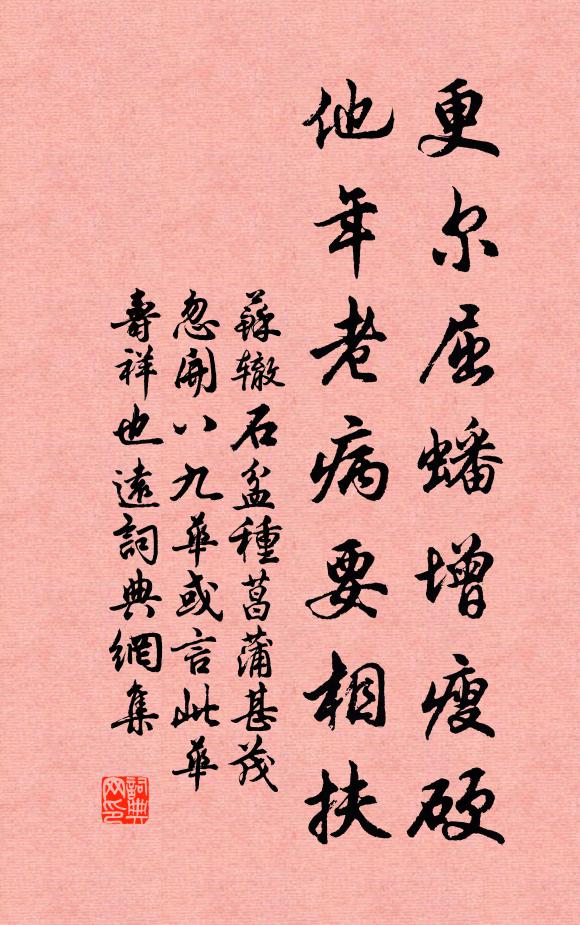 更尔屈蟠增瘦硬
他年老病要相扶
蘇辙石盆種菖蒲甚茂
忽開八九華或言此華
壽祥也遠詞典網集
詞典
网印